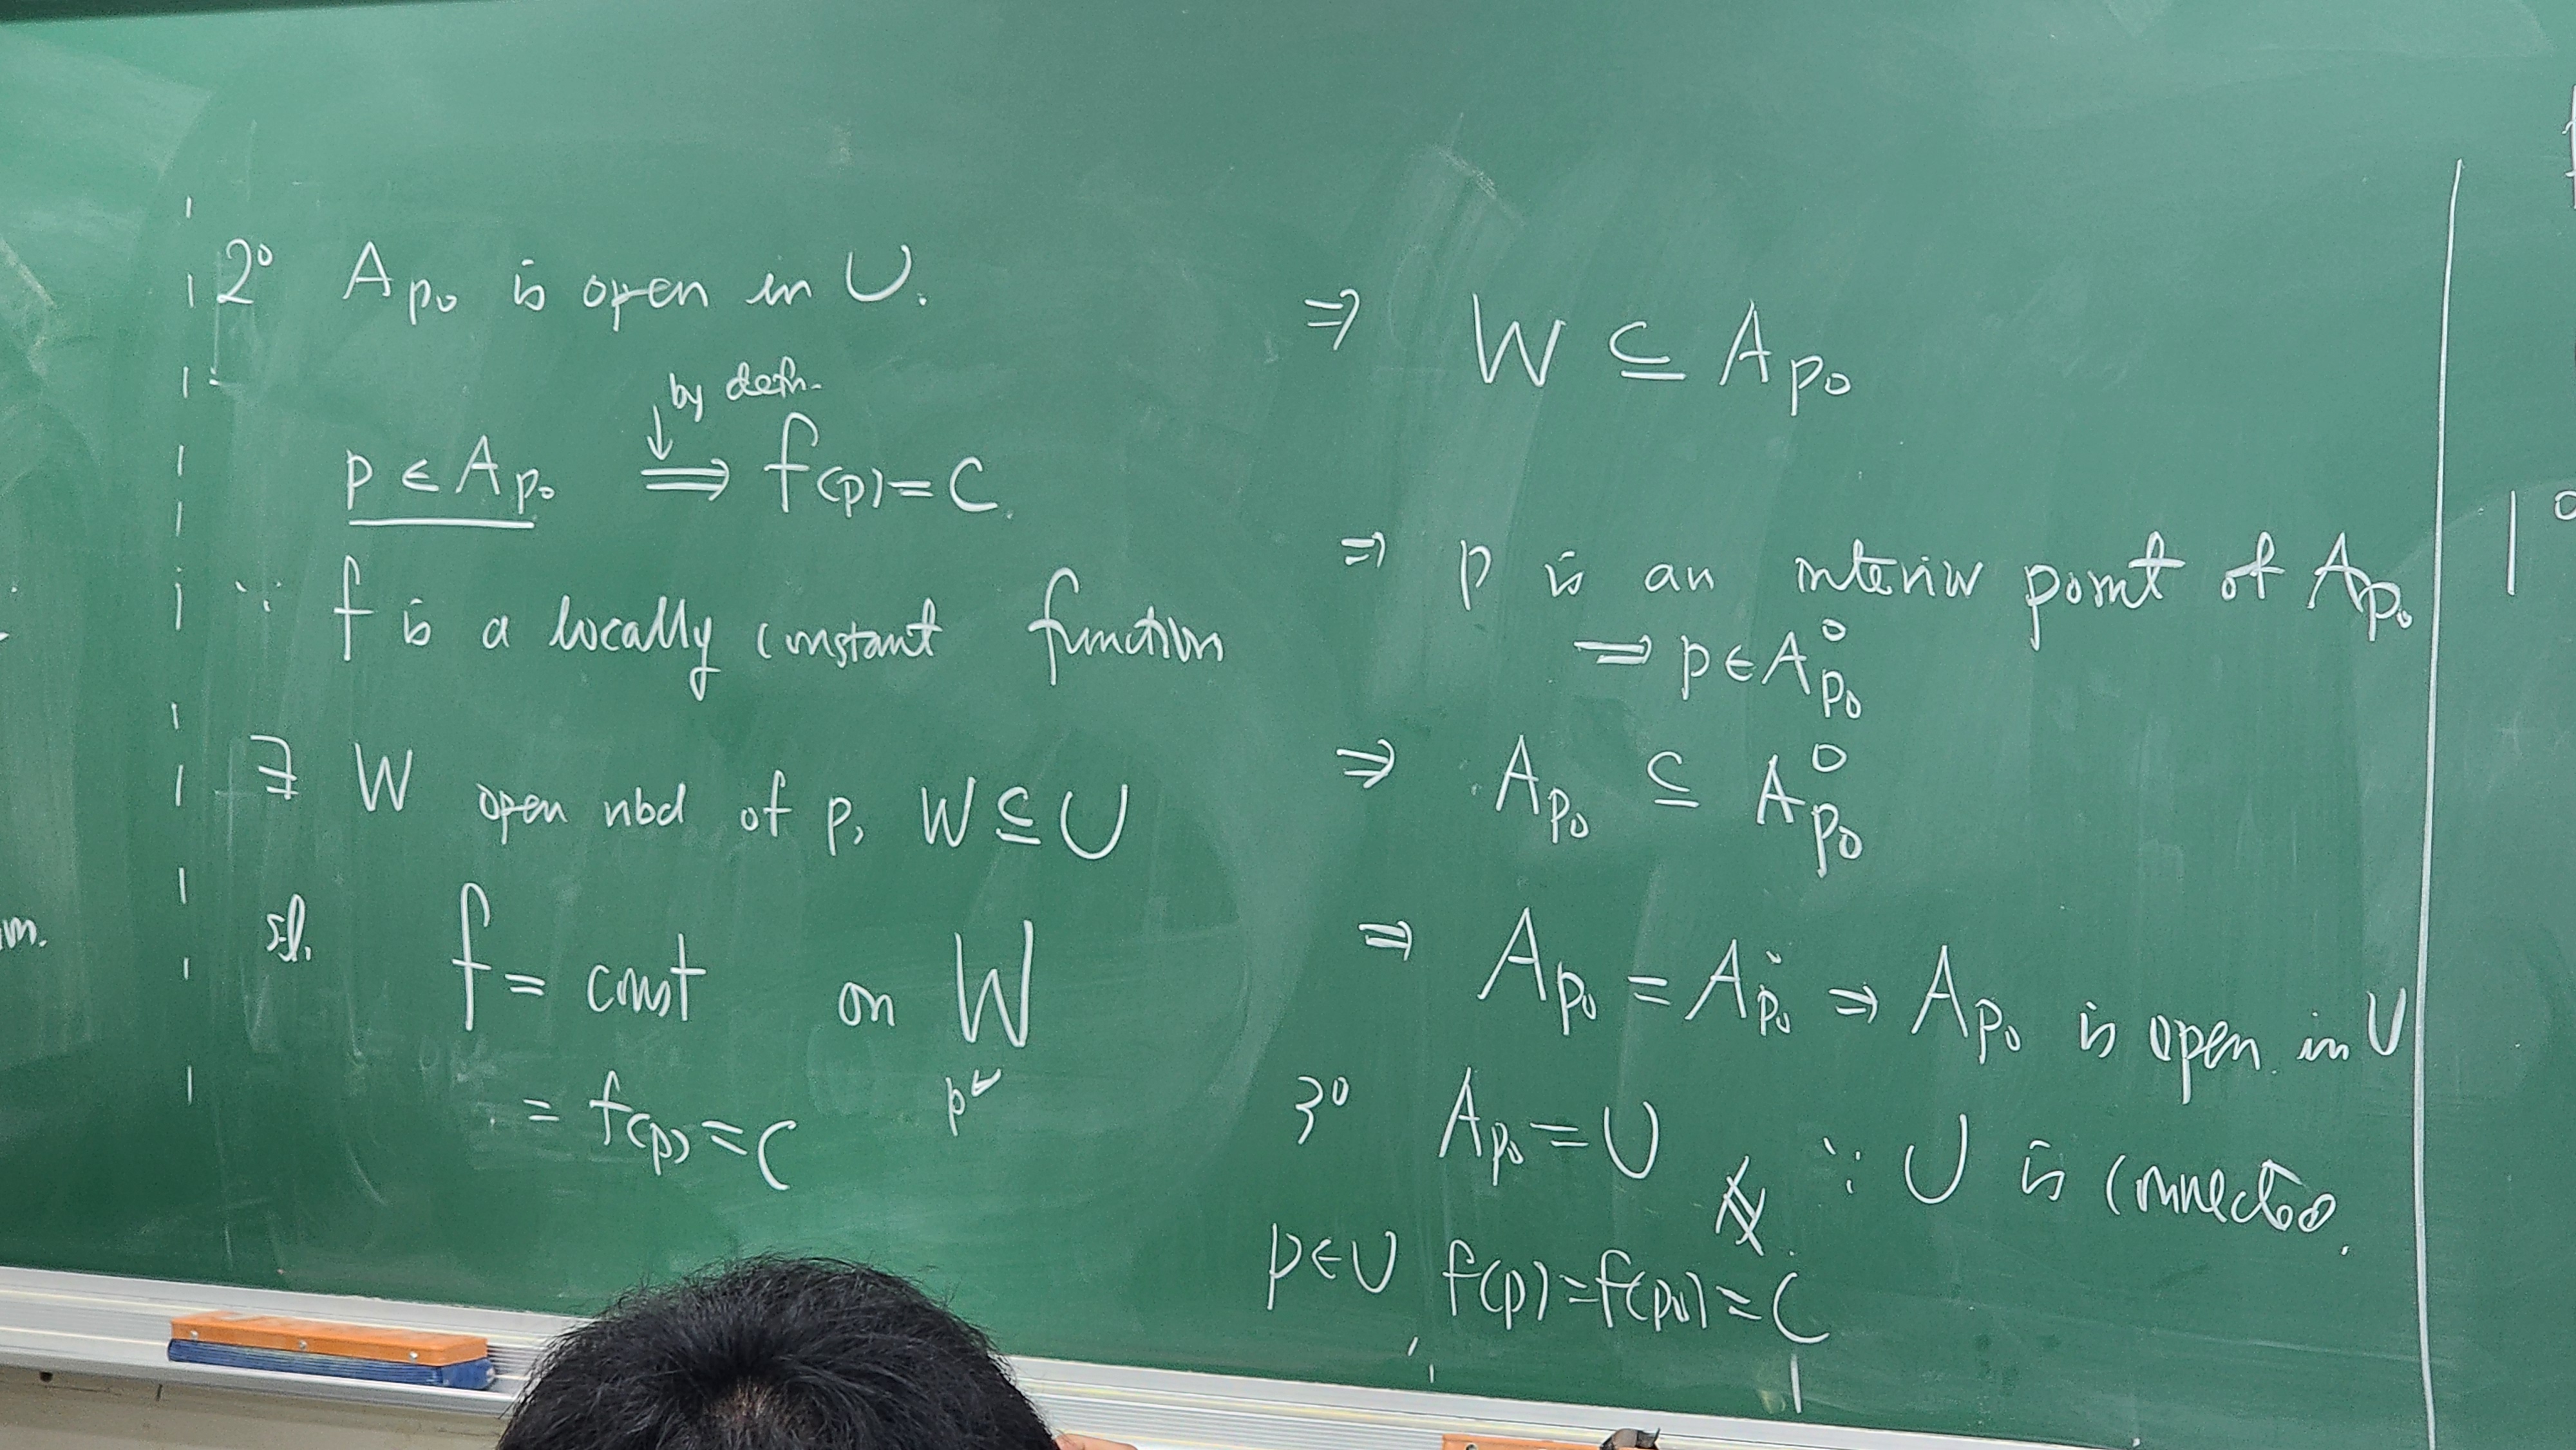 2° A_{p₀} is open in U.
by defn.
p ∈ A_{p₀} ⟹ f(p) = C.
∵ f is a locally constant function
∃ W open nbd of p, W ⊆ U
s.t. f = const on W
= f(p) = C
p
⇒ W ⊆ A_{p₀}
⇒ p is an interior point of A_{p₀}
⇒ p ∈ A°_{p₀}
⇒ A_{p₀} ⊆ A°_{p₀}
⇒ A_{p₀} = A°_{p₀} ⇒ A_{p₀} is open in U
3° A_{p₀} = U ∵ U is connected.
p ∈ U f(p) = f(p₀) = C
m.
1°